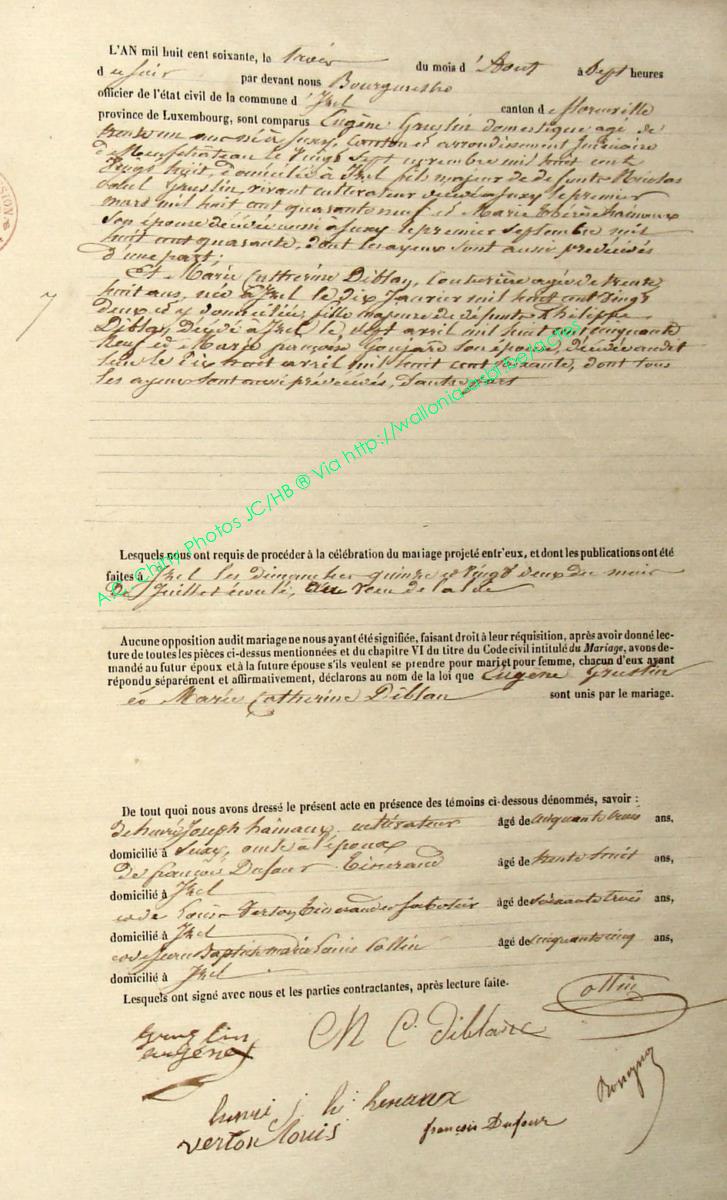 L'AN mil huit cent soixante, le trois du mois d'Aout à Sept heures
d u soir par devant nous Bourgmestre
officier de l'état civil de la commune d'Izel canton de florenville
province de Luxembourg, sont comparus Eugène Gruslin domestique agé de
trente un ans né à Suxy, Canton et arrondissement judiciaire
de Neufchâteau le Vingt Sept novembre mil huit cent
Vingt huit, domicilié à Izel fils majeur de defunts Nicolas
Gruslin, vivant cultivateur decédé à Suxy le premier
mars mil huit cent quarante neuf et Marie thérèse hainaux
Son épouse décédée aussi à Suxy le premier Septembre mil
huit cent quarante, dont les ayeux sont aussi prédécédés
d'une part;
Et Marie Catherine Diblan, Couturière agée de trente
huit ans, née à Izel le dix Janvier mil huit cent Vingt
deux et y domiciliée, fille majeure de défunts Philippe
Diblan, Décédé à Izel le Sept avril mil huit cent cinquante
neuf et Marie françoise Goujard son épouse, décédée audit
lieu le dix huit avril mil huit cent soixante, dont tous
les ayeux sont aussi prédécédés, d'autre part
A.D. Photos JC/HB ® Via http://wallonia.asbl.be/actes
Lesquels nous ont requis de procéder à la célébration du mariage projeté entr'eux, et dont les publications ont été
faites à Izel les dimanches quinze et Vingt deux du mois
De Juillet écoulé,
Aucune opposition audit mariage ne nous ayant été signifiée, faisant droit à leur réquisition, après avoir donné lec-
ture de toutes les pièces ci-dessus mentionnées et du chapitre VI du titre du Code civil intitulé du Mariage, avons de-
mandé au futur époux et à la future épouse s'ils veulent se prendre pour mari et pour femme, chacun d'eux ayant
répondu séparément et affirmativement, déclarons au nom de la loi que Eugène Gruslin
et Marie Catherine Diblan sont unis par le mariage.
De tout quoi nous avons dressé le présent acte en présence des témoins ci-dessous dénommés, savoir :
De henri Joseph hainaux cultivateur âgé de cinquante trois ans,
domicilié à Suxy, oncle à l'époux
De françois Dufour Tisserand âgé de trente huit ans,
domicilié à Izel
et de Louis Verton Tisserand Sabotier âgé de Soixante trois ans,
domicilié à Izel
et de Jean Baptiste marie Louis Collin âgé de cinquante cinq ans,
domicilié à Izel
Lesquels ont signé avec nous et les parties contractantes, après lecture faite.
Collin
Gruslin
eugène
M C. diblanc
henri j. h. henaux
verton louis
françois Dufour